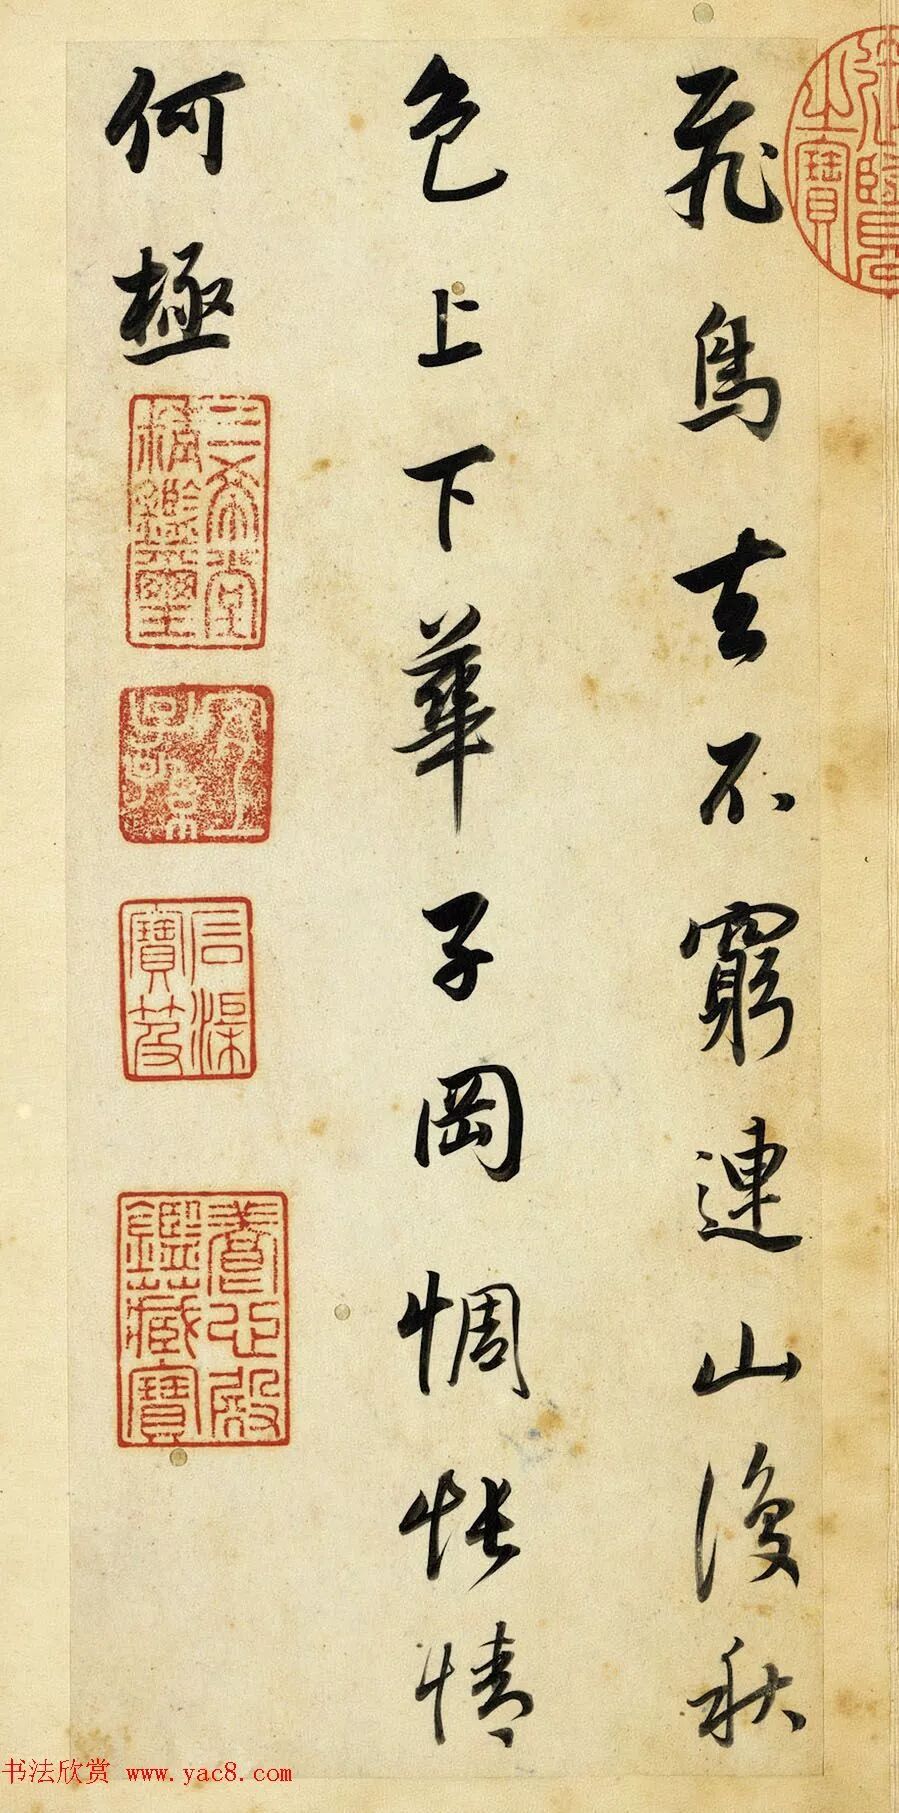 飛鳥去不窮連山復秋
色上下華子岡惆悵情
何極
三希堂精鑑璽
石渠寶笈
養心殿鑑藏寶
书法欣赏 www.yac8.com